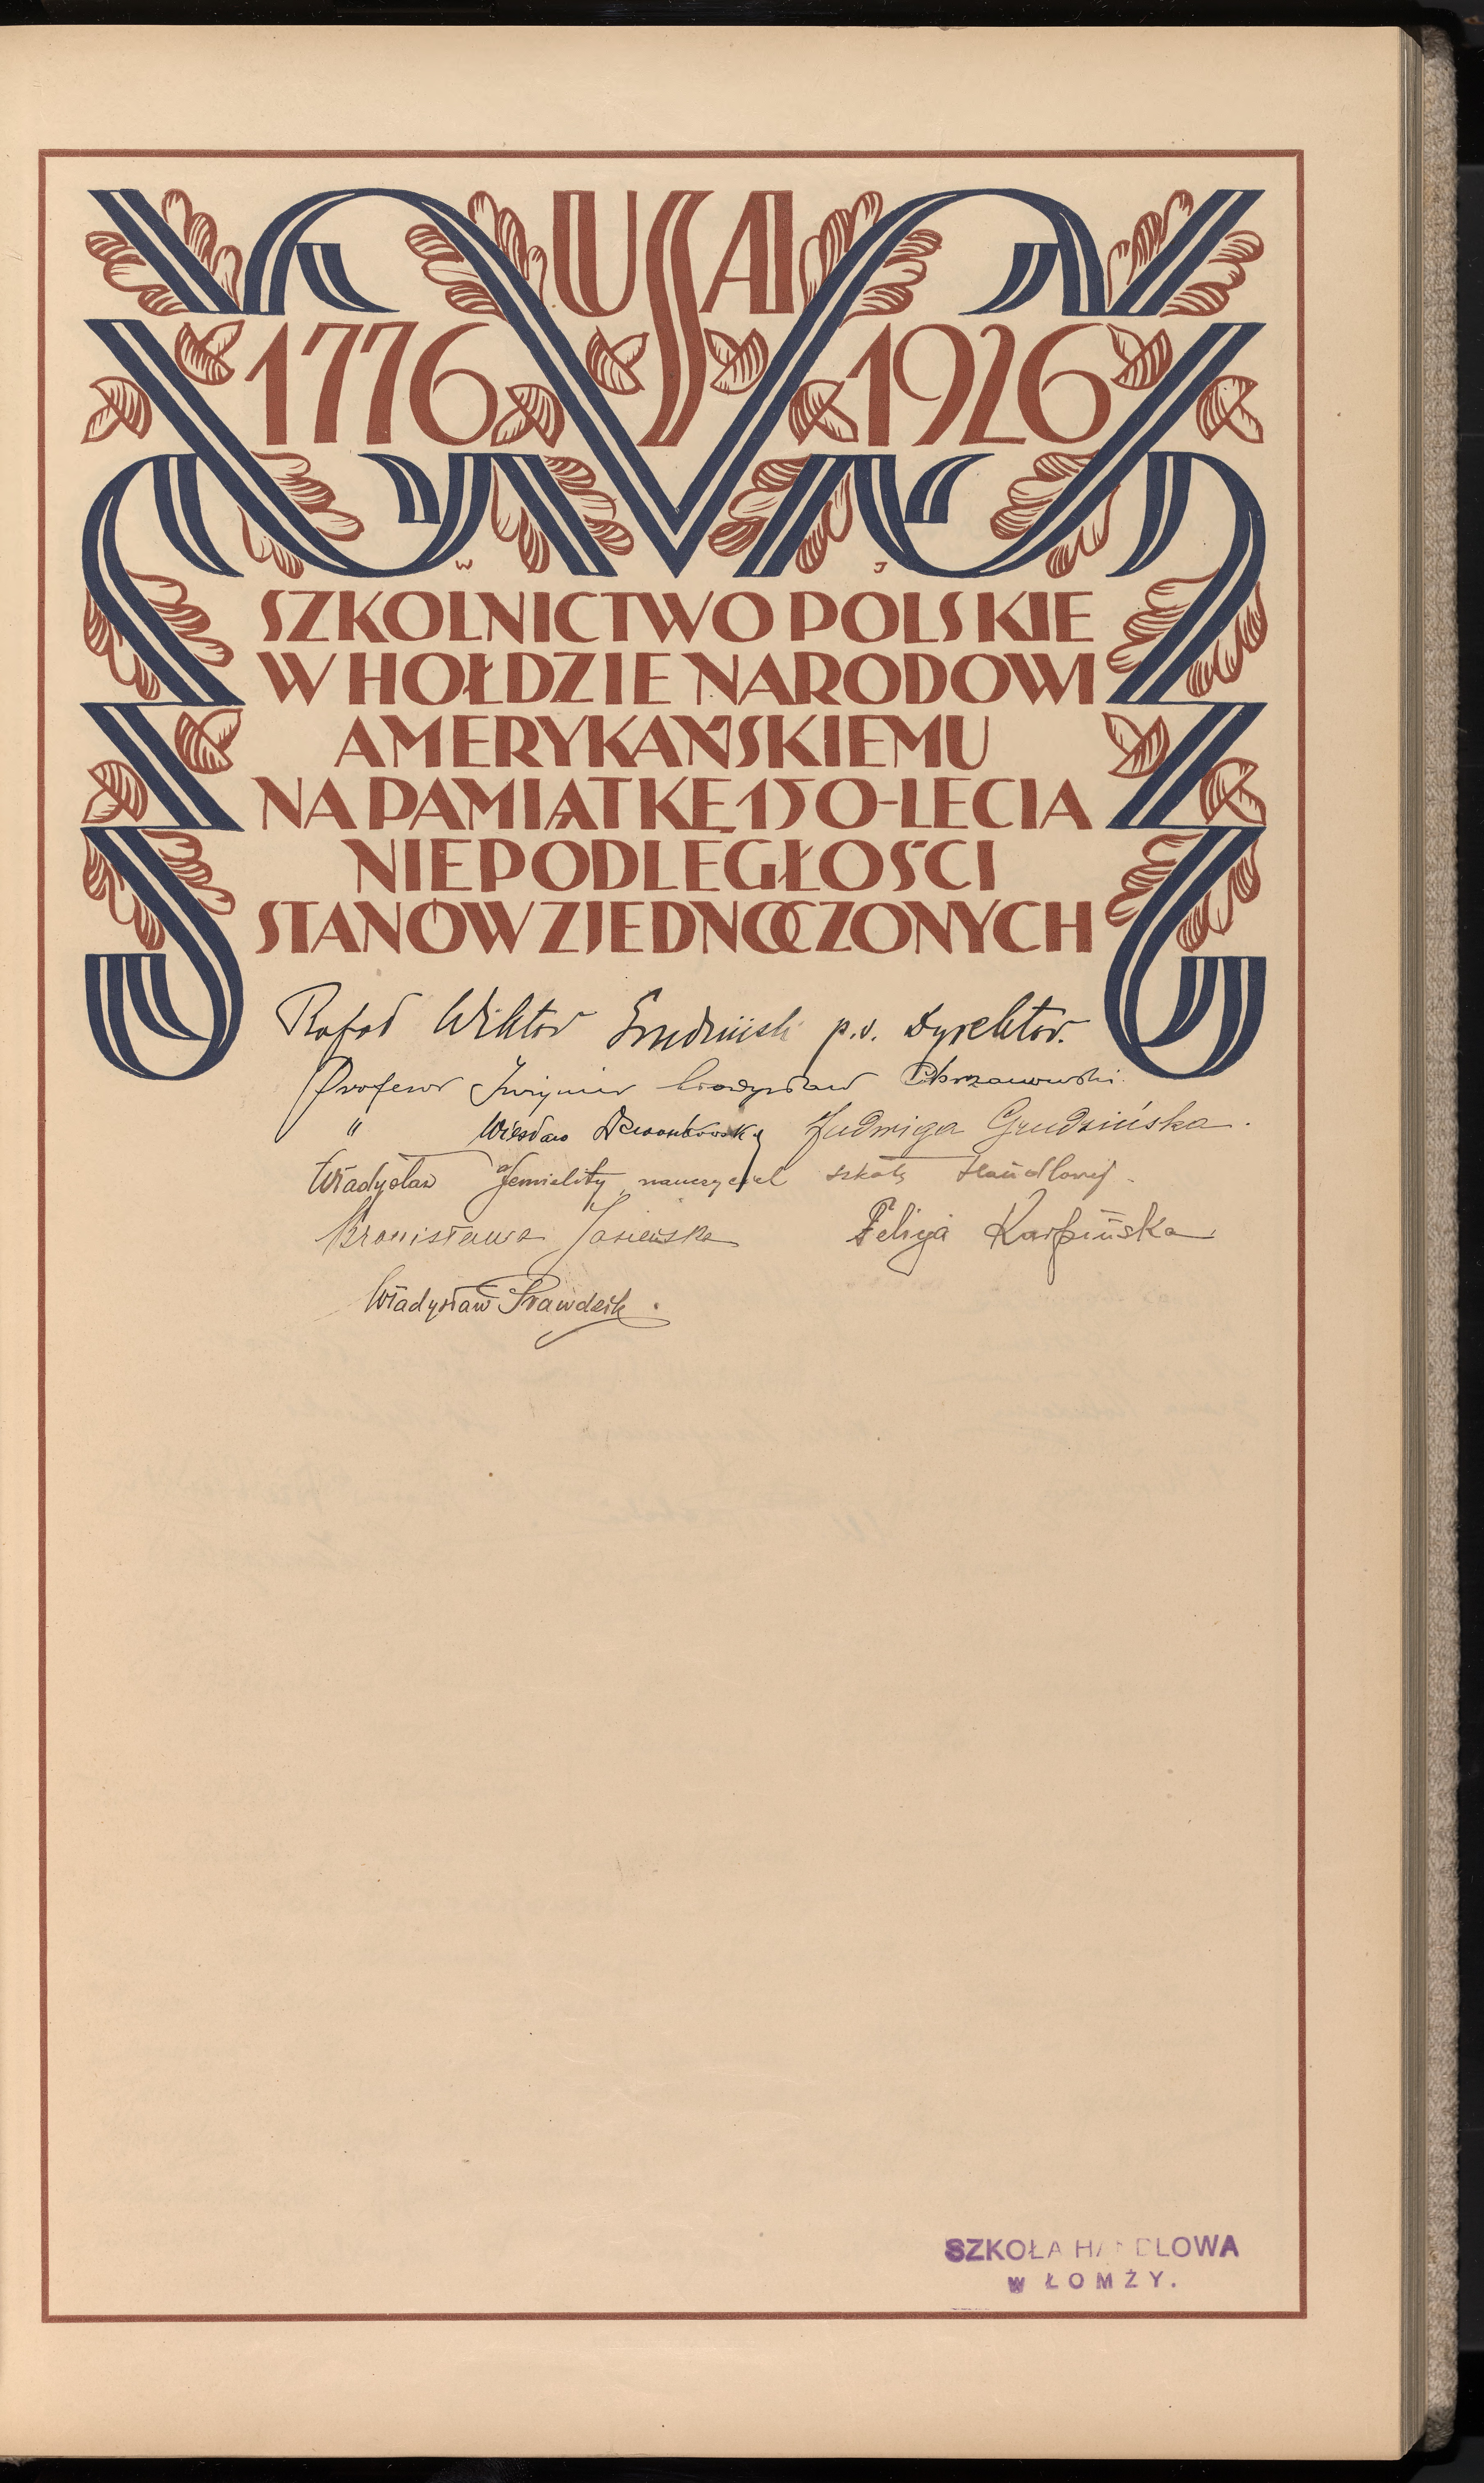 USA
1776 1926
W J
SZKOLNICTWO POLSKIE
W HOŁDZIE NARODOWI
AMERYKAŃSKIEMU
NA PAMIĄTKĘ 150-LECIA
NIEPODLEGŁOŚCI
STANÓW ZJEDNOCZONYCH
Rafał Wiktor Grudziński p.o. Dyrektor.
Profesor Władysław Chrzanowski.
" Wiesław Jadwiga Grudzińska.
Władysław Jemielity nauczyciel szkoły Handlowej.
Bronisława Jasieńska Felicja Karpińska
Władysław Prawdzik.
SZKOŁA HANDLOWA
W ŁOMŻY.